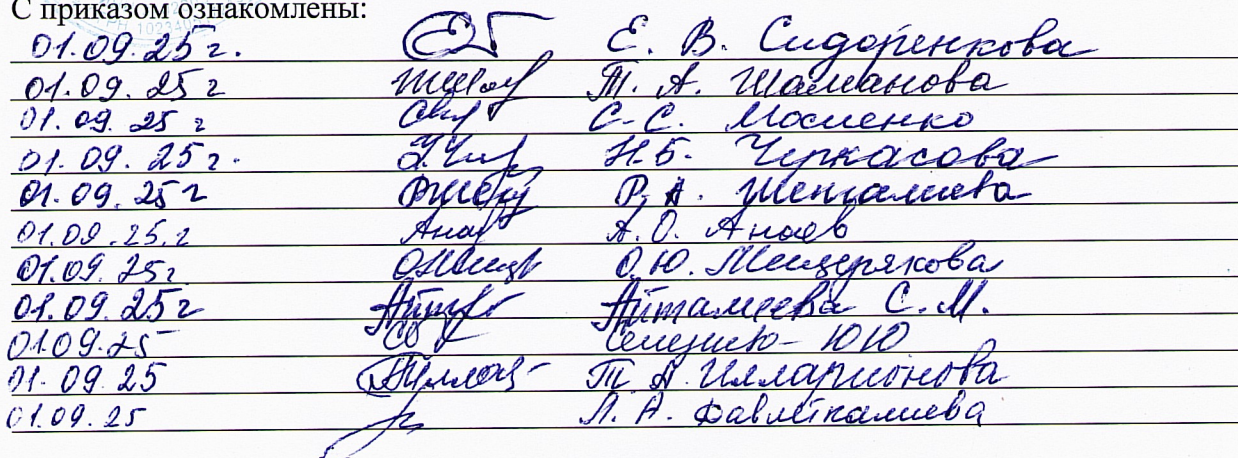 С приказом ознакомлены:
01.09.25 г. Е. В. Сидоренкова
01.09.25 г Т. А. Шаманова
01.09.25 г С.С. Мосиенко
01.09.25 г. Н.Б. Черкасова
01.09.25 г Р. А. Шенгалиева
01.09.25.г А.О. Анаев
01.09.25г О.Ю. Мещерякова
01.09.25г С.М.
01.09.25 ЮЮ
01.09.25 Т А Илларионова
01.09.25 Л. А. Давлеткалиева